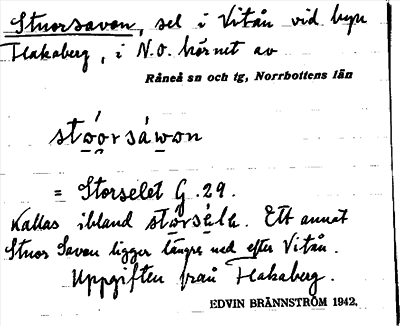 Stuorsavon, sel i Vitån vid byn
Flakaberg, i N.O. hörnet av
Råneå sn och tg, Norrbottens län
stɷ́orsáwɷn
= Storselet G. 29.
Kallas ibland
Ett annat
Stuor Savon ligger längre ned efter Vitån.
Uppgiften från Flakaberg.
EDVIN BRÄNNSTRÖM 1942.